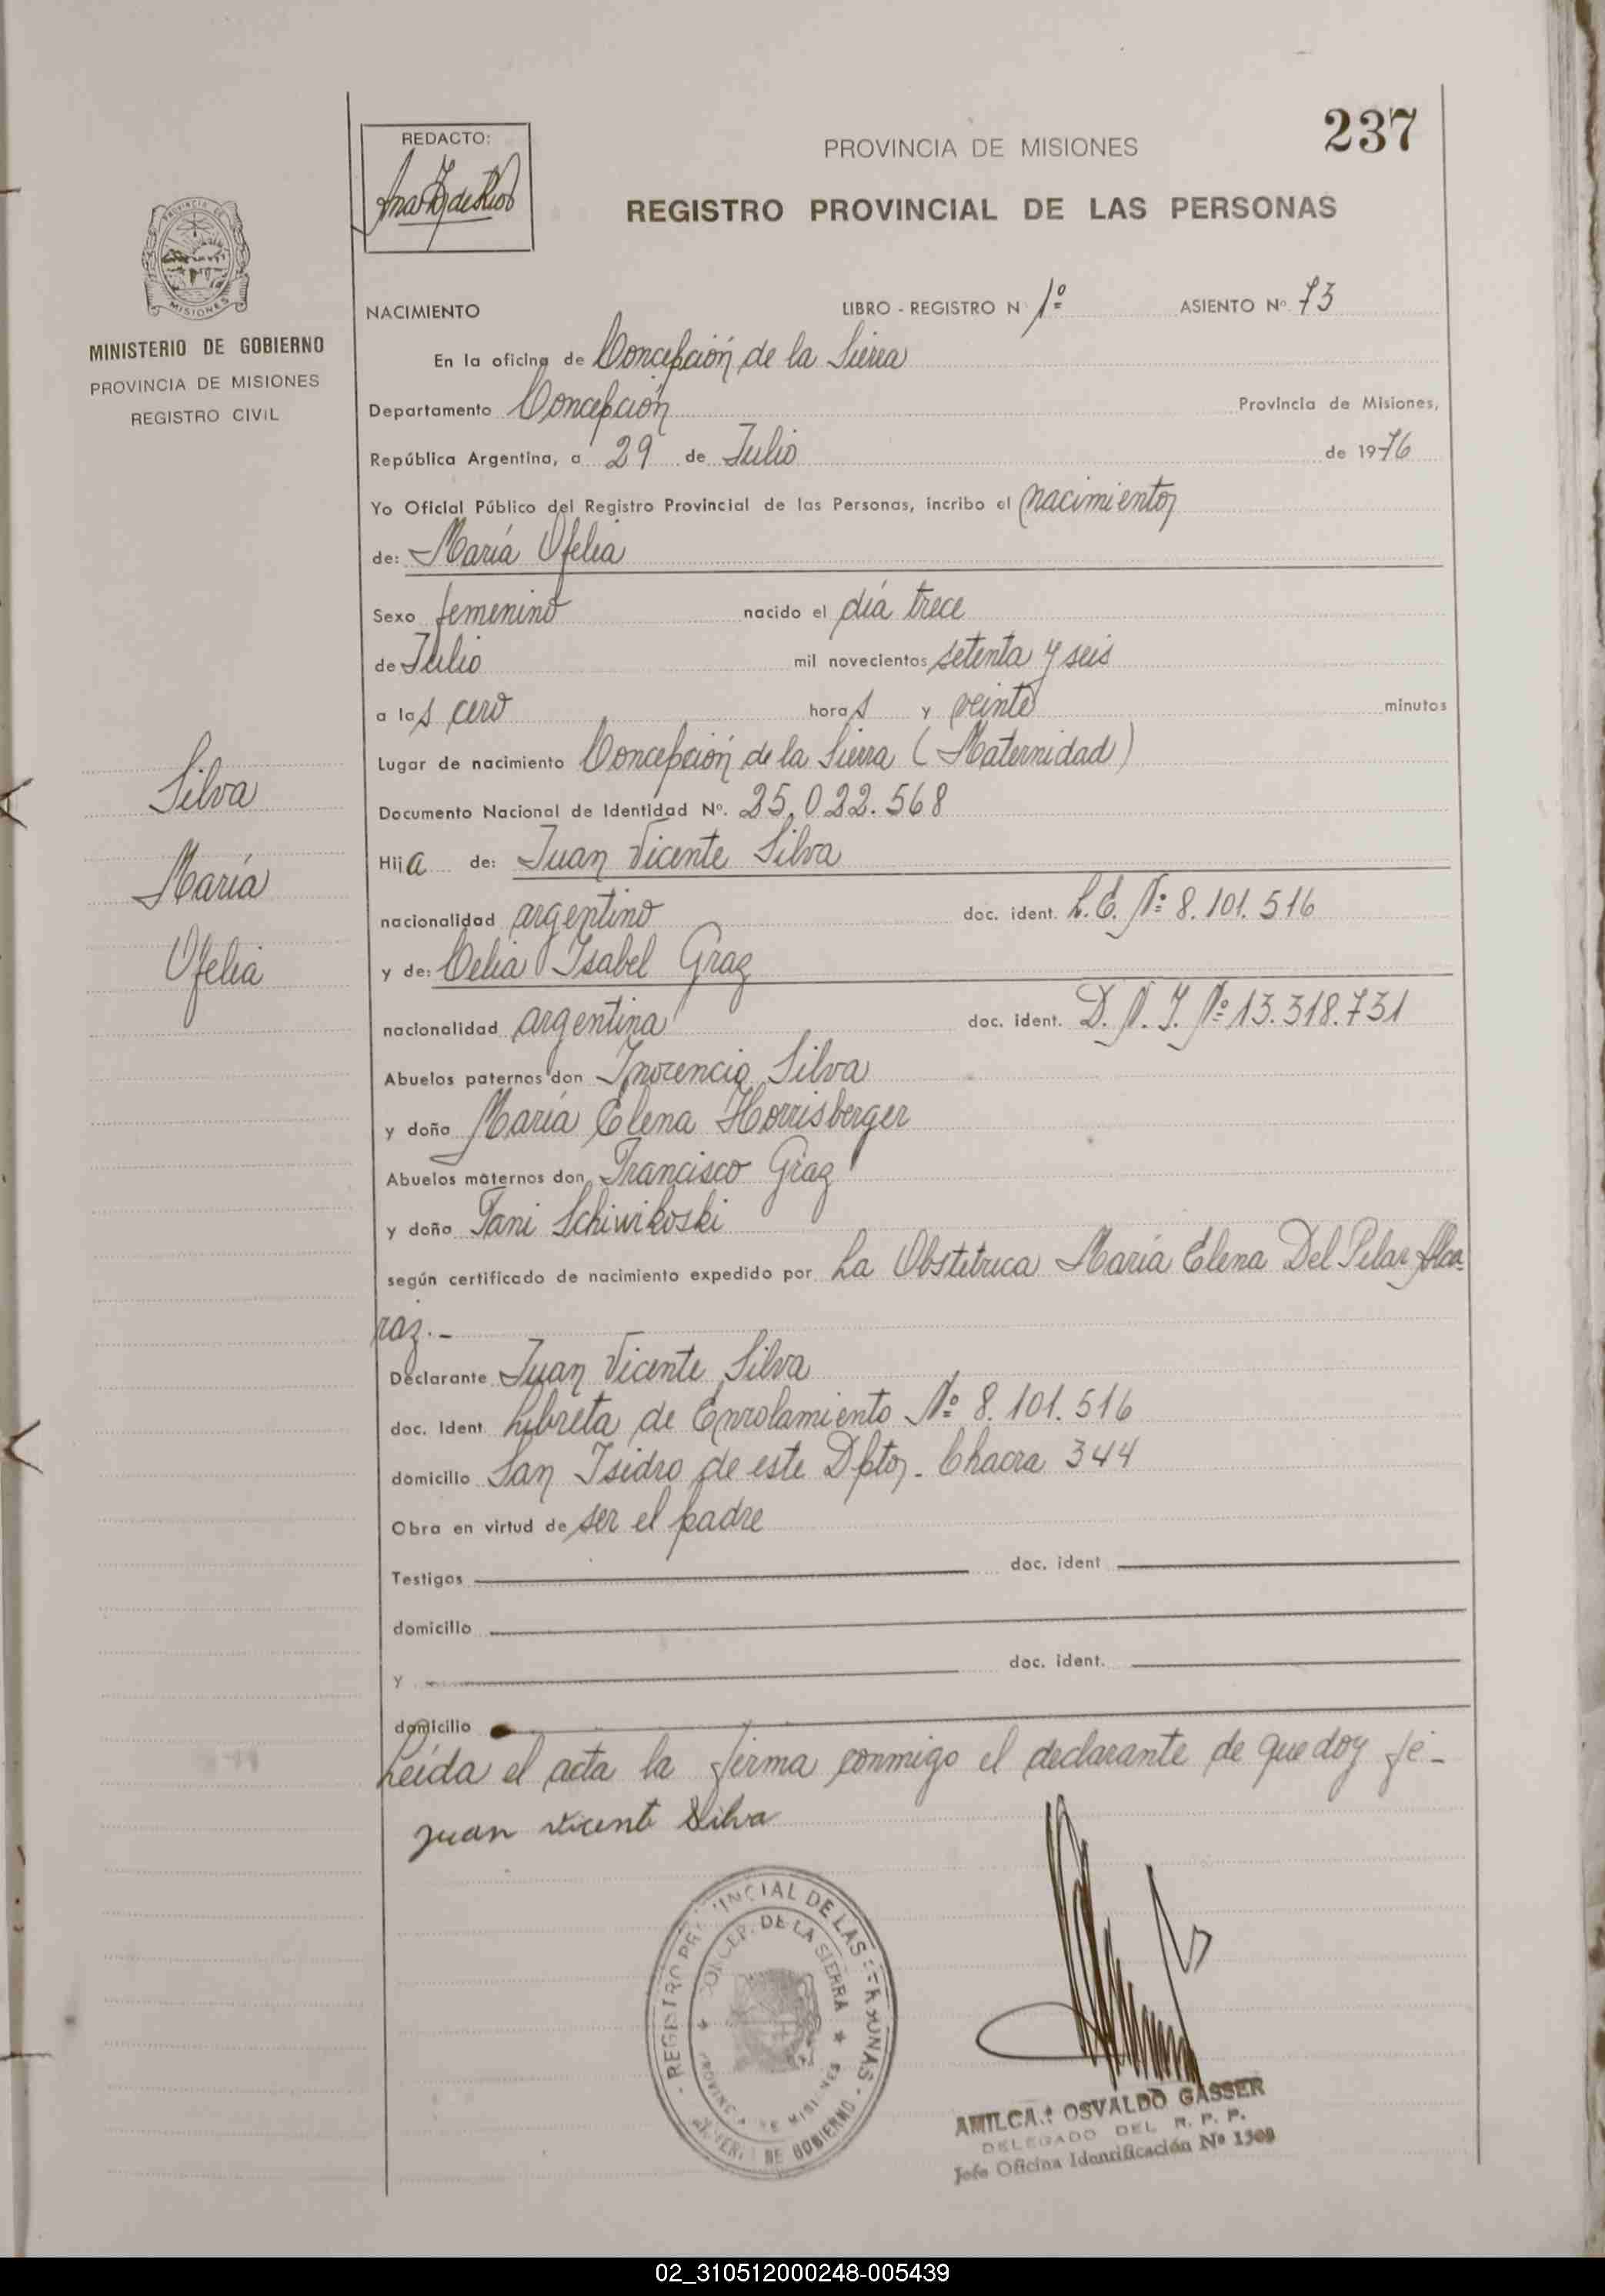 237
REDACTO:
PROVINCIA DE MISIONES
REGISTRO PROVINCIAL DE LAS PERSONAS
PROVINCIA DE
MISIONES
MINISTERIO DE GOBIERNO
PROVINCIA DE MISIONES
REGISTRO CIVIL
NACIMIENTO LIBRO - REGISTRO N 1º ASIENTO Nº 73
En la oficina de Concepción de la Sierra
Departamento Concepción Provincia de Misiones,
República Argentina, a 29 de Julio de 1976
Yo Oficial Público del Registro Provincial de las Personas, incribo el nacimiento
de: María Ofelia
Sexo femenino nacido el día trece
de Julio mil novecientos setenta y seis
a las cero horas y veinte minutos
Lugar de nacimiento Concepción de la Sierra (Maternidad)
Documento Nacional de Identidad Nº. 25.022.568
Hija de: Juan Vicente Silva
nacionalidad argentino doc. ident. L.E. Nº 8.101.516
y de: Celia Isabel Graz
nacionalidad argentina doc. ident. D.N.I. Nº 13.318.731
Abuelos paternos don Inocencio Silva
y doña María Elena Horrisberger
Abuelos maternos don Francisco Graz
y doña Tani Schiwikoski
según certificado de nacimiento expedido por La Obstetrica María Elena Del Pilar Alca-
raz.-
Declarante Juan Vicente Silva
doc. Ident Libreta de Enrolamiento Nº 8.101.516
domicilio San Isidro de este Dpto. Chacra 344
Obra en virtud de ser el padre
Testigos doc. ident
domicilio
y doc. ident.
domicilio
Leída el acta la firma conmigo el declarante de que doy fé-
Juan Vicente Silva
Silva
María
Ofelia
REGISTRO PROVINCIAL DE LAS PERSONAS
CONCEP. DE LA SIERRA
DE GOBIERNO
AMILCAR OSVALDO GASSER
DELEGADO DEL R. P. P.
Jefe Oficina Identificación Nº 1509
02_310512000248-005439